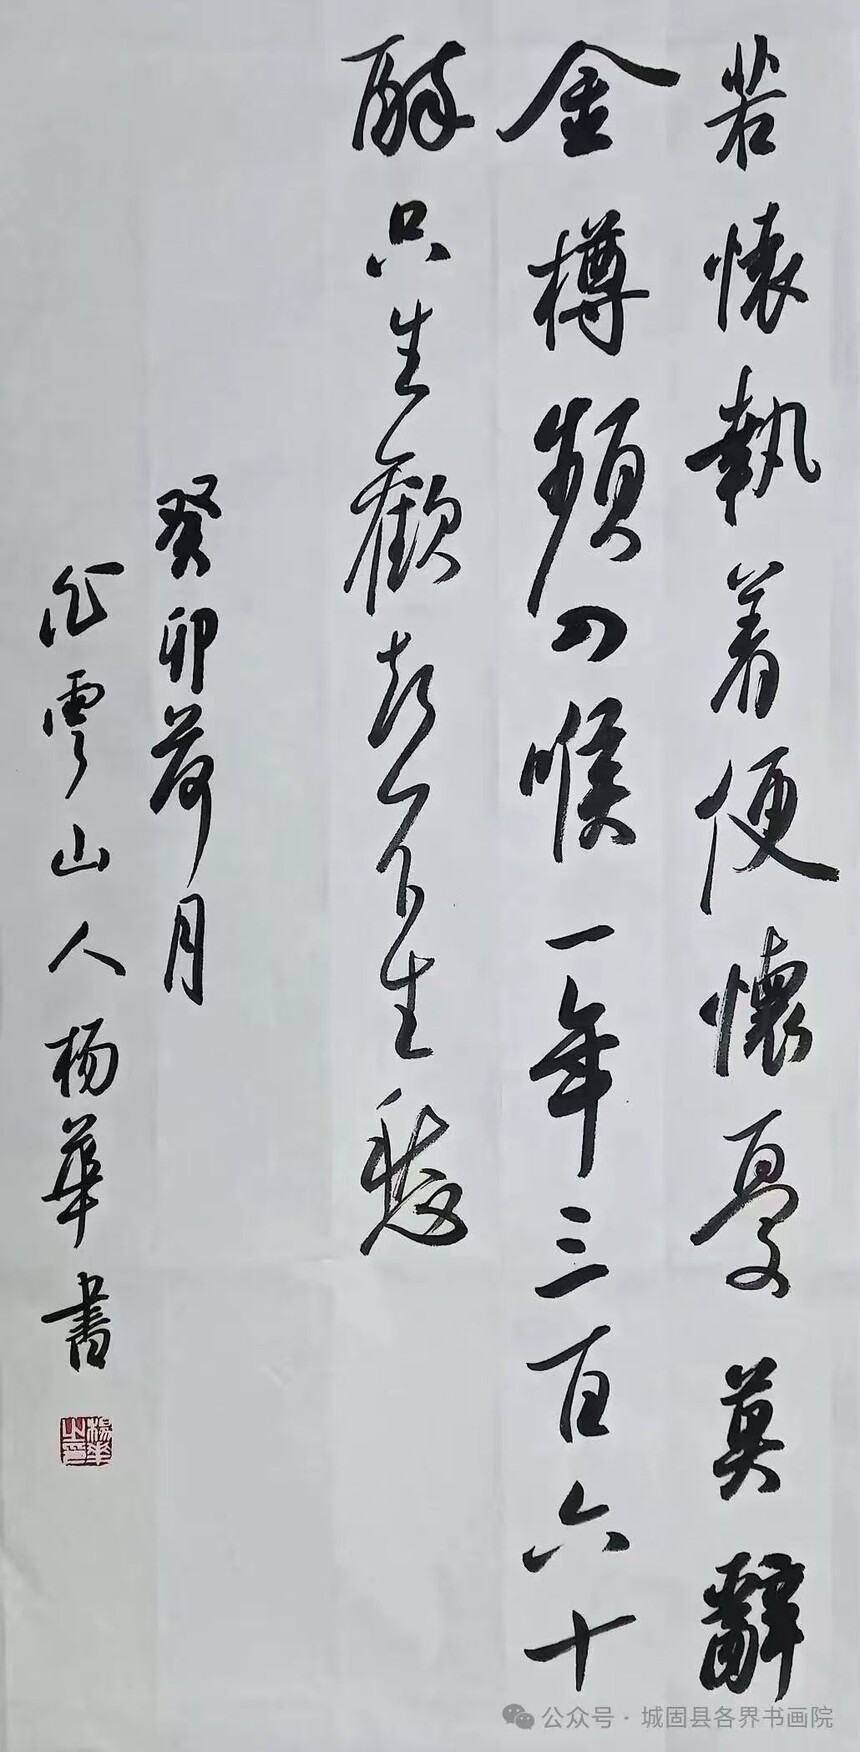 若懷執着便懷憂莫辭
金樽頻入喉一年三百六十
醉只生歡喜不生愁
癸卯荷月
雲山人杨華書
楊華之印
公众号·城固县各界书画院